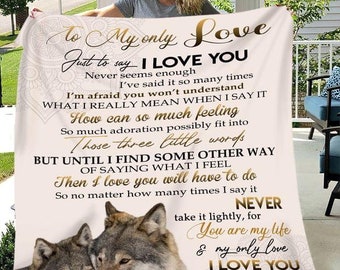 To My only Love
Just to say I LOVE YOU
Never seems enough
I've said it so many times
I'm afraid you won't understand
WHAT I REALLY MEAN WHEN I SAY IT
How can so much feeling
So much adoration possibly fit into
Those three little words
BUT UNTIL I FIND SOME OTHER WAY
OF SAYING WHAT I FEEL
Then I love you will have to do
So no matter how many times I say it
NEVER
take it lightly, for
You are my life
& my only love
I LOVE YOU